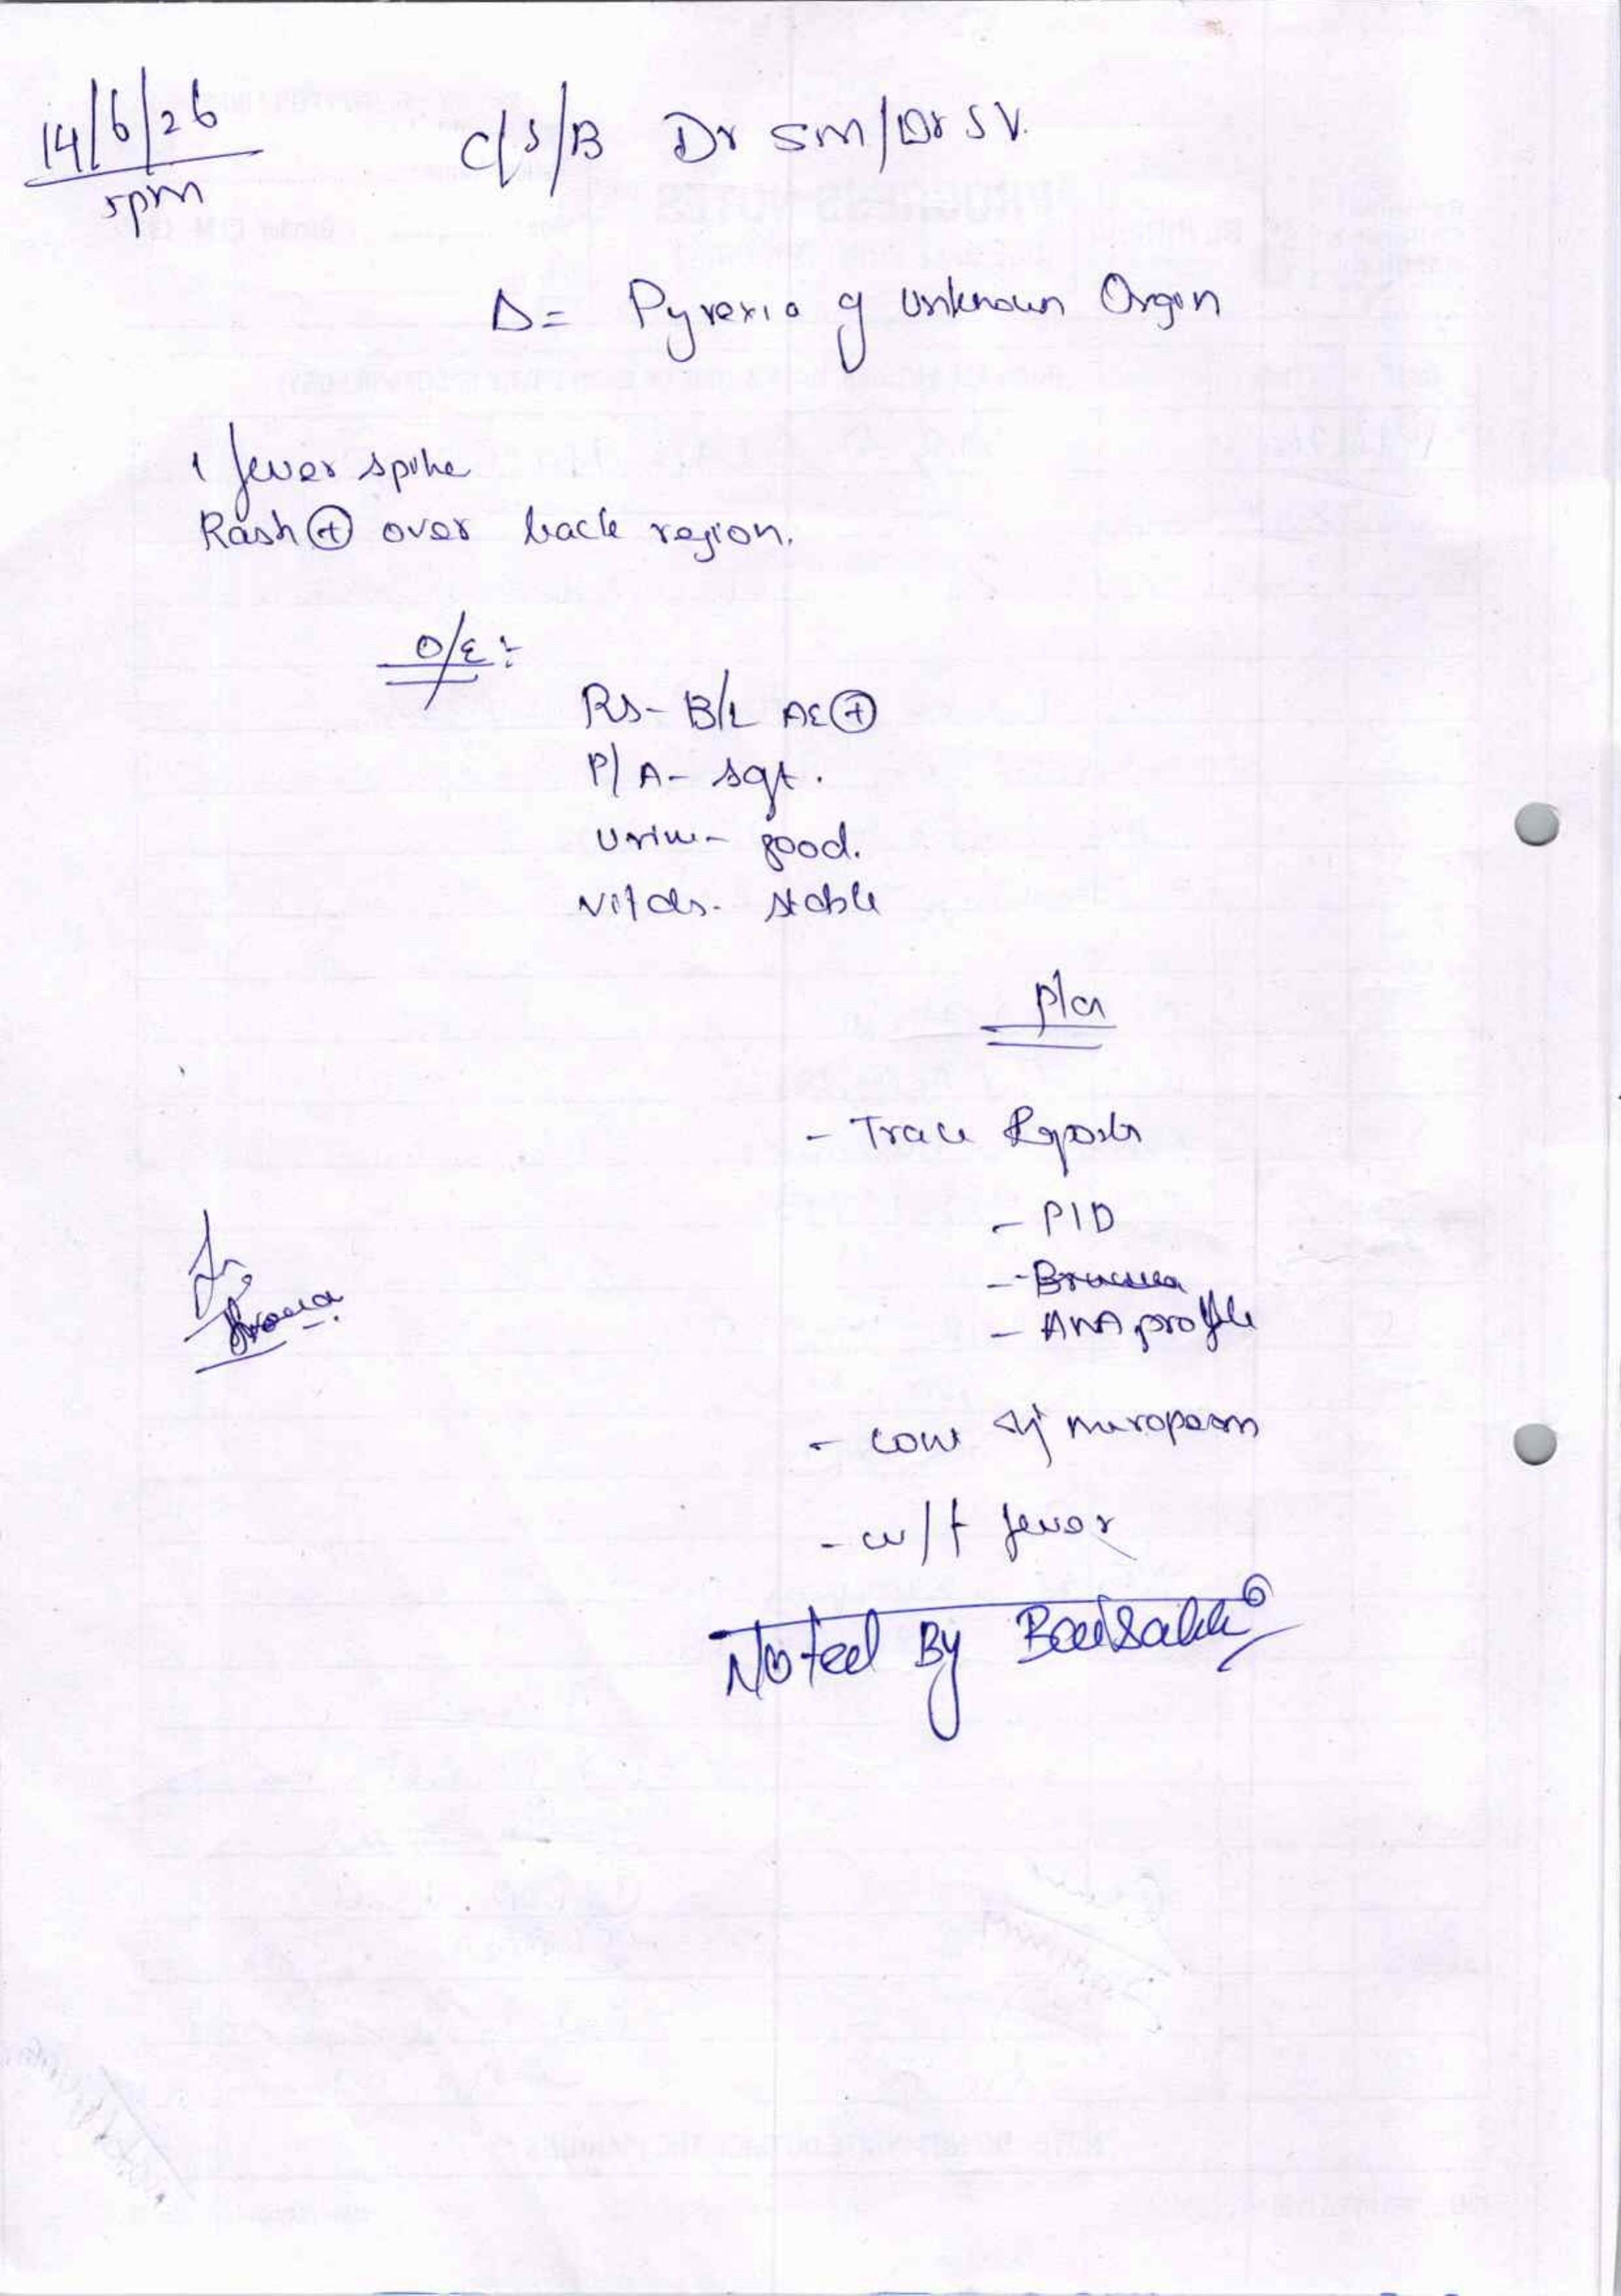 14/6/26
5pm
C/S/B Dr SM/Dr SV.
Δ= Pyrexia of Unknown Origin
1 fever spike
Rash (+) over back region.
O/E:-
RS- B/L AE (+)
P/A- soft.
Urine- good.
Vitals- stable
Plan
- Trace Reports
- PID
- Brucella
- ANA profile
- cont inj meropenem
- w/f fever
Noted By Baisakhi